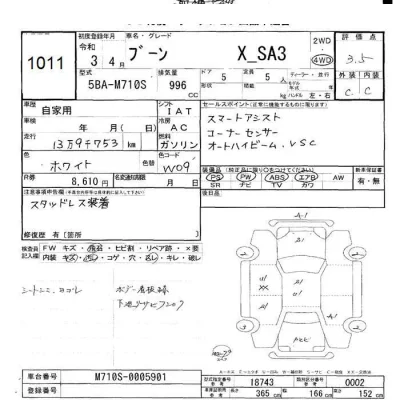 1011
初度登録年月
車名・グレード
令和
3年4月
ブーン
X_SA3
2WD
4WD
評価点
3.5
型式
5BA-M710S
排気量
996
CC
ドア
5
定員
5
人
ディーラー・並行
形状
積載
kg
ハンドル
左・右
外装
内装
C
C
車歴
自家用
シフト
IAT
車検
年 月(日)
冷房
AC
走行
13万9千753km
燃料
ガソリン
色
ホワイト
色替
色コード
W09
R券
8,610円
名変期限
月 日
注意事項申告欄
スタッドレス装着
修復歴 有(箇所 )
セールスポイント(正常に機能するものに限ります)
スマートアシスト
コーナーセンサー
オートハイビーム、VSC
PS
PW
ABS
エアB
AW
SR
ナビ
TV
カワ
新車保証書
有・無
後日品
検査員記入欄
FW キズ・飛石・ヒビ割・リペア跡・×要
内装 キズ・汚レ・コゲ・穴・スレ・キレ・破レ
A-1
A2
車台番号
M710S-0005901
登録番号
型式指定番号
18743
類別区分番号
0002
長さ
365
cm
幅
166
cm
高さ
152
cm